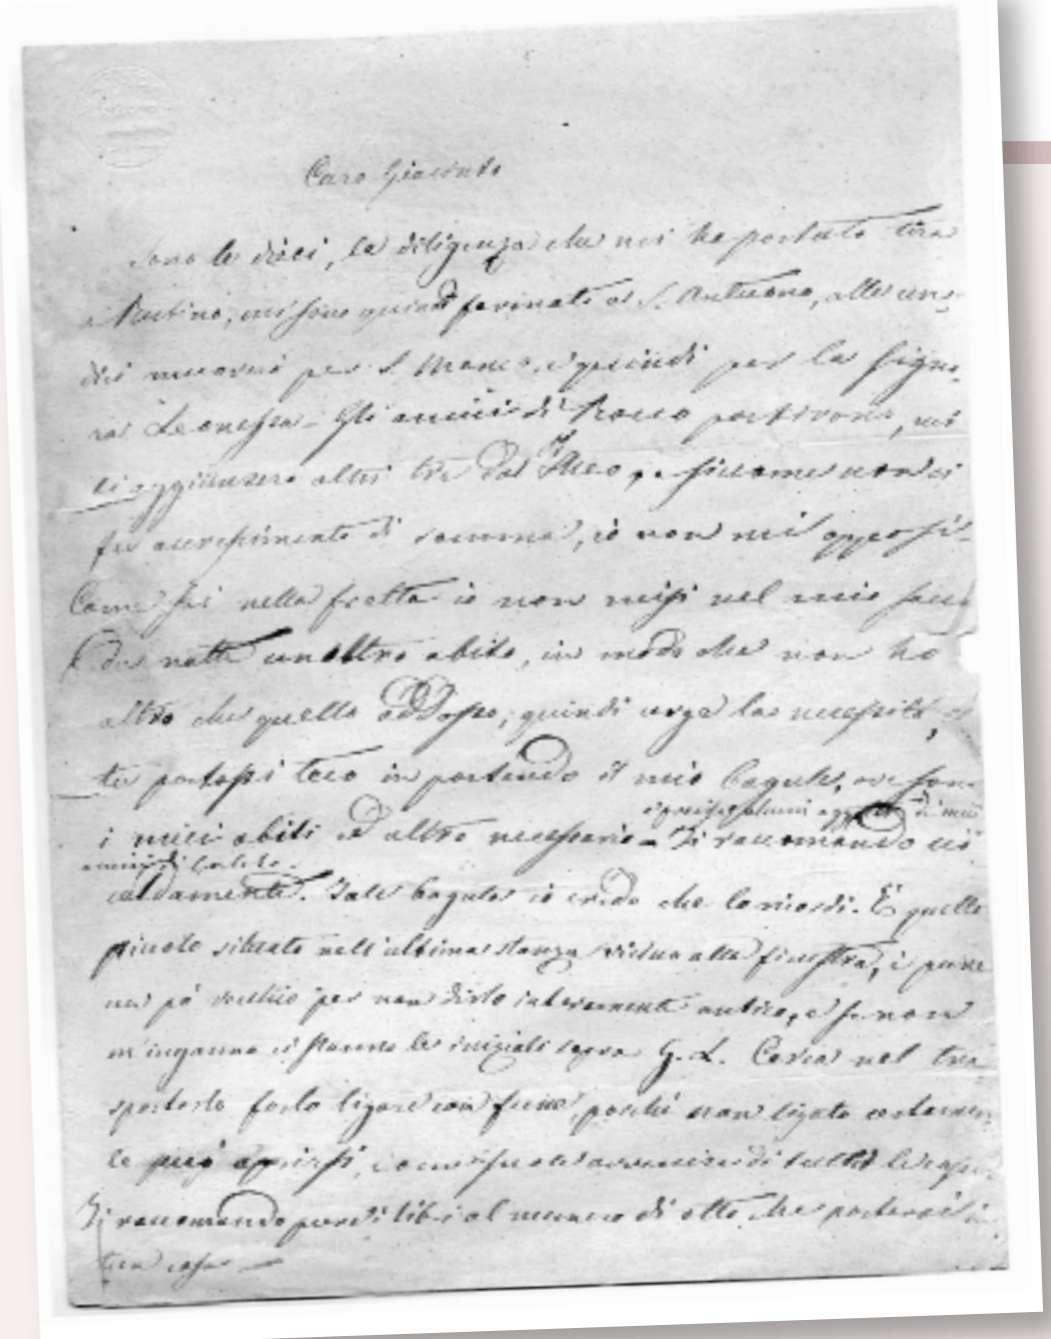 Caro Giacinto
Sono le dieci, la diligenza che mi ha portato tira
mi sono quindi fermato a S. Antuono, alle un-
dici muoverò per S. Marco, e quindi per la Signo-
ra Leonessa - Gli amici di Rocco partirono, mi
si aggiunsero altri tre dal e siccome non ci
fu accrescimento di somma, io non mi opposi -
Come sai nella fretta io non misi nel mio sacco
da notte un altro abito, in modo che non ho
altro che quello addosso; quindi urge la necessità,
tu portassi teco in partendo il mio bagule, ove sono
di miei
i miei abiti ed altro necessario - Ti raccomando ciò
amici di
caldamente. Tale bagule io credo che lo ricordi. È quello
piccolo situato nell'ultima stanza vicino alla finestra, è pure
un pò vecchio per non dirlo interamente antico, e se non
m'inganno ci stanno le iniziali sopra G. L. Cerca nel tra
sportarlo farlo ligare con fune, perchè non ligato
te può aprirsi, come suole avvenire di tutte le
Ti raccomando pure i libri al numero di otto che porterai in
tua casa -